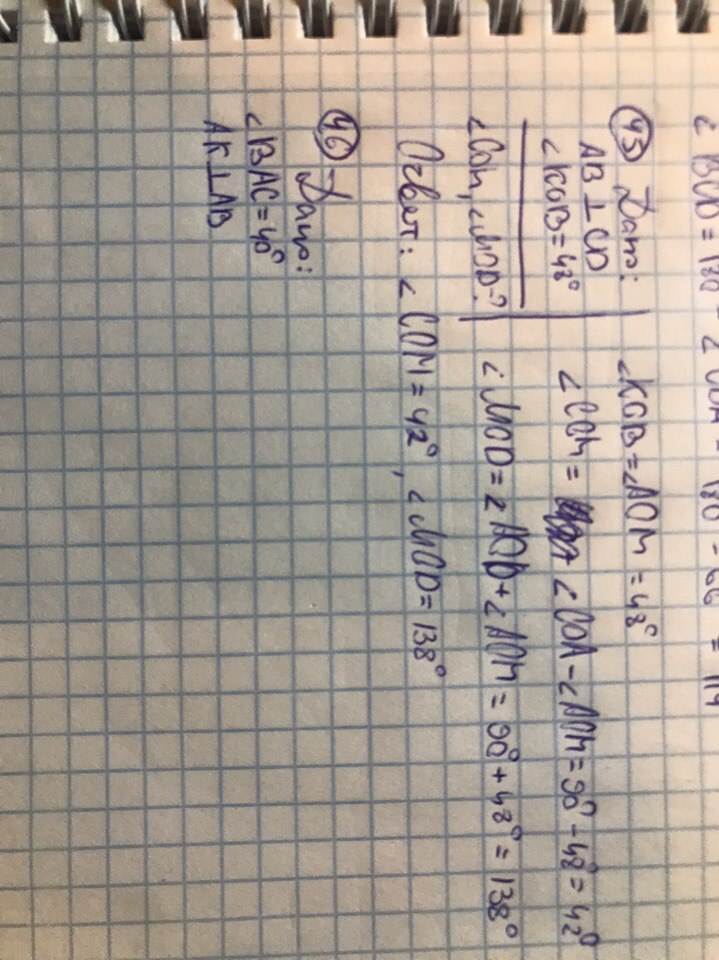 ∠BOD = 180 - ∠ COA = 180 - 66 = 114
45 Дано:
AB ⊥ CD
∠KOB = 48°
∠COM, ∠MOD-?
∠KOB = ∠AOM = 48°
∠COM = ∠COA - ∠AOM = 90° - 48° = 42°
∠MOD = ∠AOD + ∠AOM = 90° + 48° = 138°
Ответ: ∠COM = 42°, ∠MOD = 138°
46 Дано:
∠BAC = 40°
AK ⊥ AB